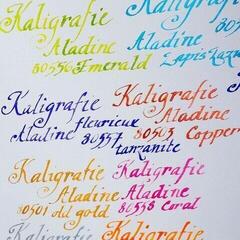 Kaligrafie
Aladine
80556 Emerald
Kaligrafie
Aladine
Kaligrafie
Aladine fleurieux
80557
tanzanite
Kaligrafie
Aladine
80503
Copper
Kaligrafie
Aladine
80501 old gold
Kaligrafie
Aladine
80558 Coral
Kaligrafie
Kaligrafie